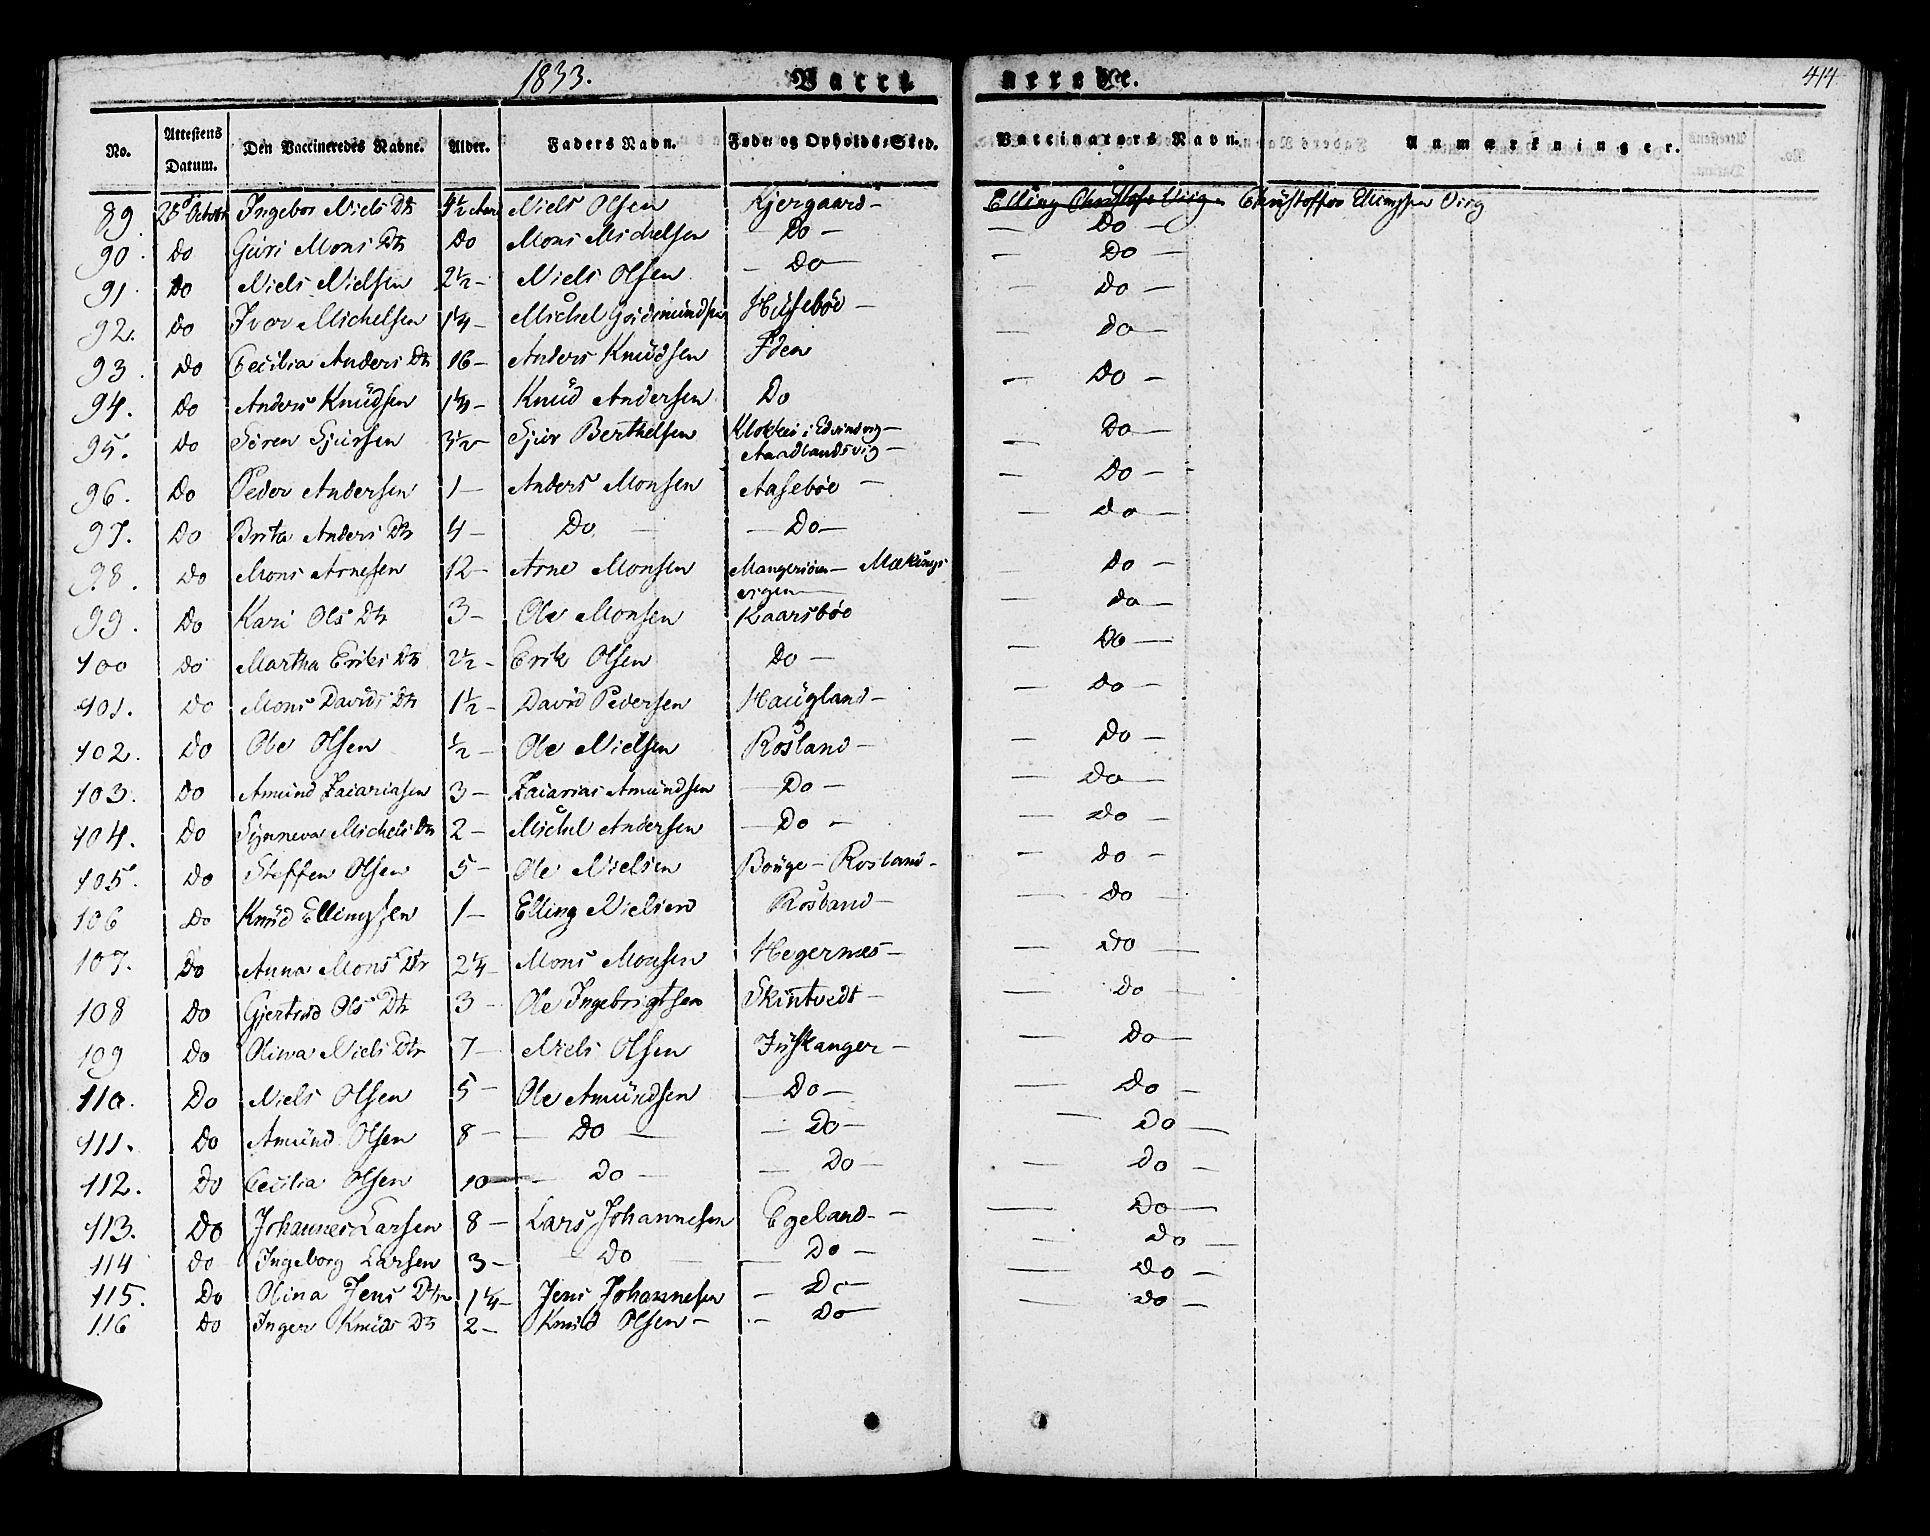 1833. Vacci nerede. 414
No. Attestens Datum. Den Vaccineredes Navne. Alder. Faders Navn. Føde- og Opholds-Sted. Vaccinatørs Navn. Anmærkninger.
89. 25de October Ingebor Niels Dtr 4½ Aar Niels Olsen Kjergaard - Christoffer Ellingsen Virg
90. Do Guri Mons Dtr Do Mons Michelsen - Do - - Do -
91. Do Niels Nielsen 2½ - Niels Olsen - Do - - Do -
92. Do Iver Michelsen 1¼ - Michel Gudmundsen Husebøe - - Do -
93. Do Cecilia Anders Dtr 16 - Anders Knudsen Iden - Do -
94. Do Anders Knudsen 1¼ - Knud Andersen Do - Do -
95. Do Søren Sjursen 3½ - Sjur Berthelsen Klokker i - Do -
96. Do Peder Andersen 1 - Anders Monsen Aasebøe - - Do -
97. Do Brita Anders Dtr 4 - Do - - Do - - Do -
98. Do Mons Arnesen 12 - Arne Monsen - Do -
99. Do Kari Ols Dtr 3 - Ole Monsen Kaarsbøe - Do -
100 Do Martha Eriks Dtr 2½ - Erik Olsen Do - - Do -
101. Do Mons Davids Dtr 1½ - David Pedersen Haugland - - Do -
102. Do Ole Olsen ½ - Ole Nielsen Rosland - - Do -
103. Do Amund Zacariasen 3 - Zacarias Amundsen - Do - - Do -
104. Do Synneva Michels Dtr 2 - Michel Andersen - Do - - Do -
105. Do Steffen Olsen 5 - Ole Nielsen Bouge - Rosland - - Do -
106 Do Knud Ellingsen 1 - Elling Nielsen Rosland - - Do -
107. Do Anna Mons Dtr 2¼ - Mons Monsen Hegernæs - - Do -
108 Do Gjertrud Ols Dtr 3 - Ole Ingebrigtsen Skintvedt - - Do -
109 Do Oliva Niels Dtr 7 - Niels Olsen Juskanger - - Do -
110. Do Niels Olsen 5 - Ole Amundsen - Do - - Do -
111. Do Amund Olsen 8 - - Do - - Do - - Do -
112. Do Cecilia Olsen 10 - Do - - Do - - Do -
113. Do Johannes Larsen 8 - Lars Johannesen Egeland - - Do -
114 Do Ingeborg Larsen 3 - Do - - Do - - Do -
115. Do Olina Jens Dtr 1¼ - Jens Johannesen - Do - - Do -
116 Do Inger Knuds Dtr 2 - Knud Olsen - - Do - - Do -